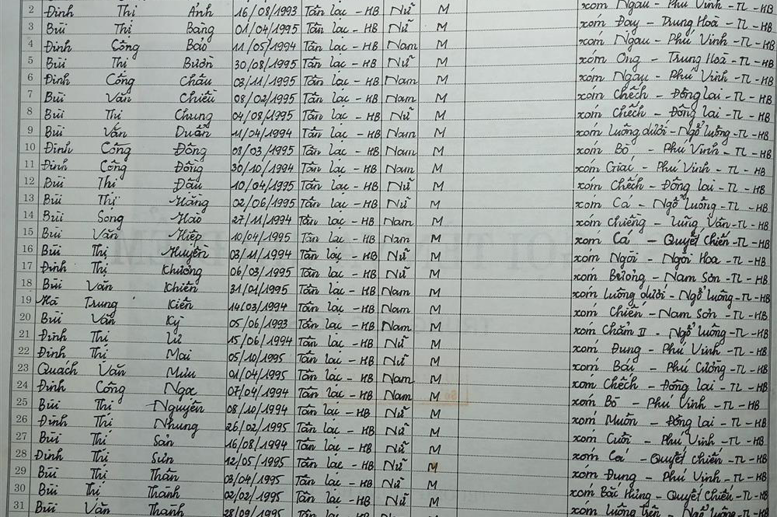 2 Đinh Thị Ánh 16/08/1993 Tân lạc - HB Nữ M xóm Ngau - Phú Vinh - TL - HB
3 Bùi Thị Bằng 01/04/1995 Tân lạc - HB Nữ M xóm Đay - Trung Hoà - TL - HB
4 Đinh Công Bảo 11/05/1994 Tân lạc - HB Nam M xóm Ngau - Phú Vinh - TL - HB
5 Bùi Thị 30/08/1995 Tân lạc - HB Nữ M xóm Ong - Trung Hoà - TL - HB
6 Đinh Công Châu 03/11/1995 Tân lạc - HB Nam M xóm Ngau - Phú Vinh - TL - HB
7 Bùi Văn Chiều 08/02/1995 Tân lạc - HB Nam M xóm Chếch - Đông lai - TL - HB
8 Bùi Thị Chung 04/08/1995 Tân lạc - HB Nữ M xóm Chếch - Đông lai - TL - HB
9 Bùi Văn Duẩn 11/04/1994 Tân lạc - HB Nam M xóm luông dưới - Ngổ luông - TL - HB
10 Đinh Công Đông 03/1995 Tân lạc - HB Nam M xóm Bo - Phú Vinh - TL - HB
11 Đinh Công Đồng 30/10/1994 Tân lạc - HB Nam M xóm - Phú Vinh - TL - HB
12 Bùi Thị Đậu 10/04/1995 Tân lạc - HB Nữ M xóm Chếch - Đông lai - TL - HB
13 Bùi Thị Hằng 02/06/1995 Tân lạc - HB Nữ M xóm Cá - Ngổ luông - TL - HB
14 Bùi Song Hào 27/11/1994 Tân lạc - HB Nam M xóm Chiềng - Lũng Vân - TL - HB
15 Bùi Văn Hiệp 10/04/1995 Tân lạc - HB Nam M xóm Cá - Quyết Chiến - TL - HB
16 Bùi Thị Huyền 03/11/1994 Tân lạc - HB Nữ M xóm Ngòi - Ngòi Hoa - TL - HB
17 Đinh Thị Khương 06/03/1995 Tân lạc - HB Nữ M xóm - Nam Sơn - TL - HB
18 Bùi Văn Khiên 31/01/1995 Tân lạc - HB Nam M xóm luông dưới - Ngổ luông - TL - HB
19 Hà Trung Kiên 14/03/1994 Tân lạc - HB Nam M xóm Chiến - Nam Sơn - TL - HB
20 Bùi Văn Kỳ 05/06/1993 Tân lạc - HB Nam M xóm Chăm II - Ngổ luông - TL - HB
21 Đinh Thị 15/06/1994 Tân lạc - HB Nữ M xóm Đung - Phú Vinh - TL - HB
22 Đinh Thị Mai 05/10/1995 Tân lạc - HB Nữ M xóm - Phú Cường - TL - HB
23 Quách Văn Mưu 01/04/1995 Tân lạc - HB Nam M xóm Chếch - Đông lai - TL - HB
24 Đinh Công Ngọc 07/04/1994 Tân lạc - HB Nam M xóm Bo - Phú Vinh - TL - HB
25 Bùi Thị Nguyên 08/10/1994 Tân lạc - HB Nữ M xóm Muôn - Đông lai - TL - HB
26 Đinh Thị Nhung 26/02/1995 Tân lạc - HB Nữ M xóm Cuôi - Phú Vinh - TL - HB
27 Bùi Thị Sản 16/08/1994 Tân lạc - HB Nữ M xóm Cá - Quyết Chiến - TL - HB
28 Đinh Thị 12/05/1995 Tân lạc - HB Nữ M xóm Đung - Phú Vinh - TL - HB
29 Bùi Thị Thân 03/04/1995 Tân lạc - HB Nữ M xóm Bắc Hưng - Quyết Chiến - TL - HB
30 Bùi Thị Thanh 02/02/1995 Tân lạc - HB Nữ M xóm luông trên - Ngổ luông - TL - HB
31 Bùi Văn Thanh 28/09/1995 Tân lạc - HB Nam M